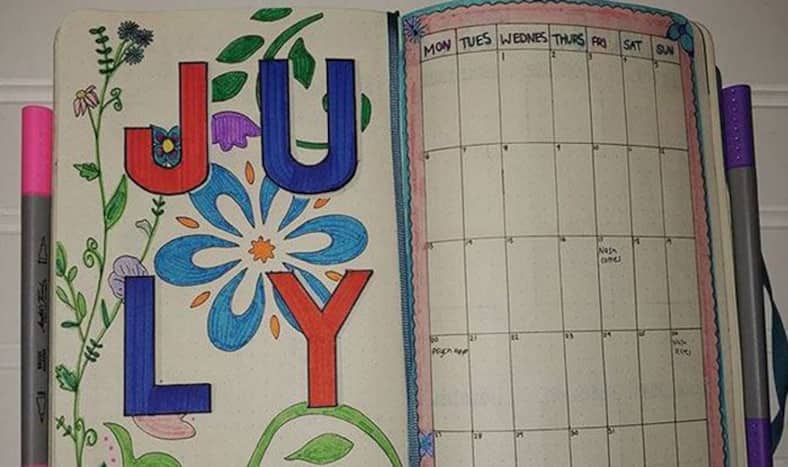 JU
LY
MON TUES WEDNES THURS FRI SAT SUN
1 2 3 4 5
6 7 8 9 10 11 12
13 14 15 16 17 18 19
Nash
comes
20 21 22 23 24 25 26
Psych appt
Nash
27 28 29 30 31